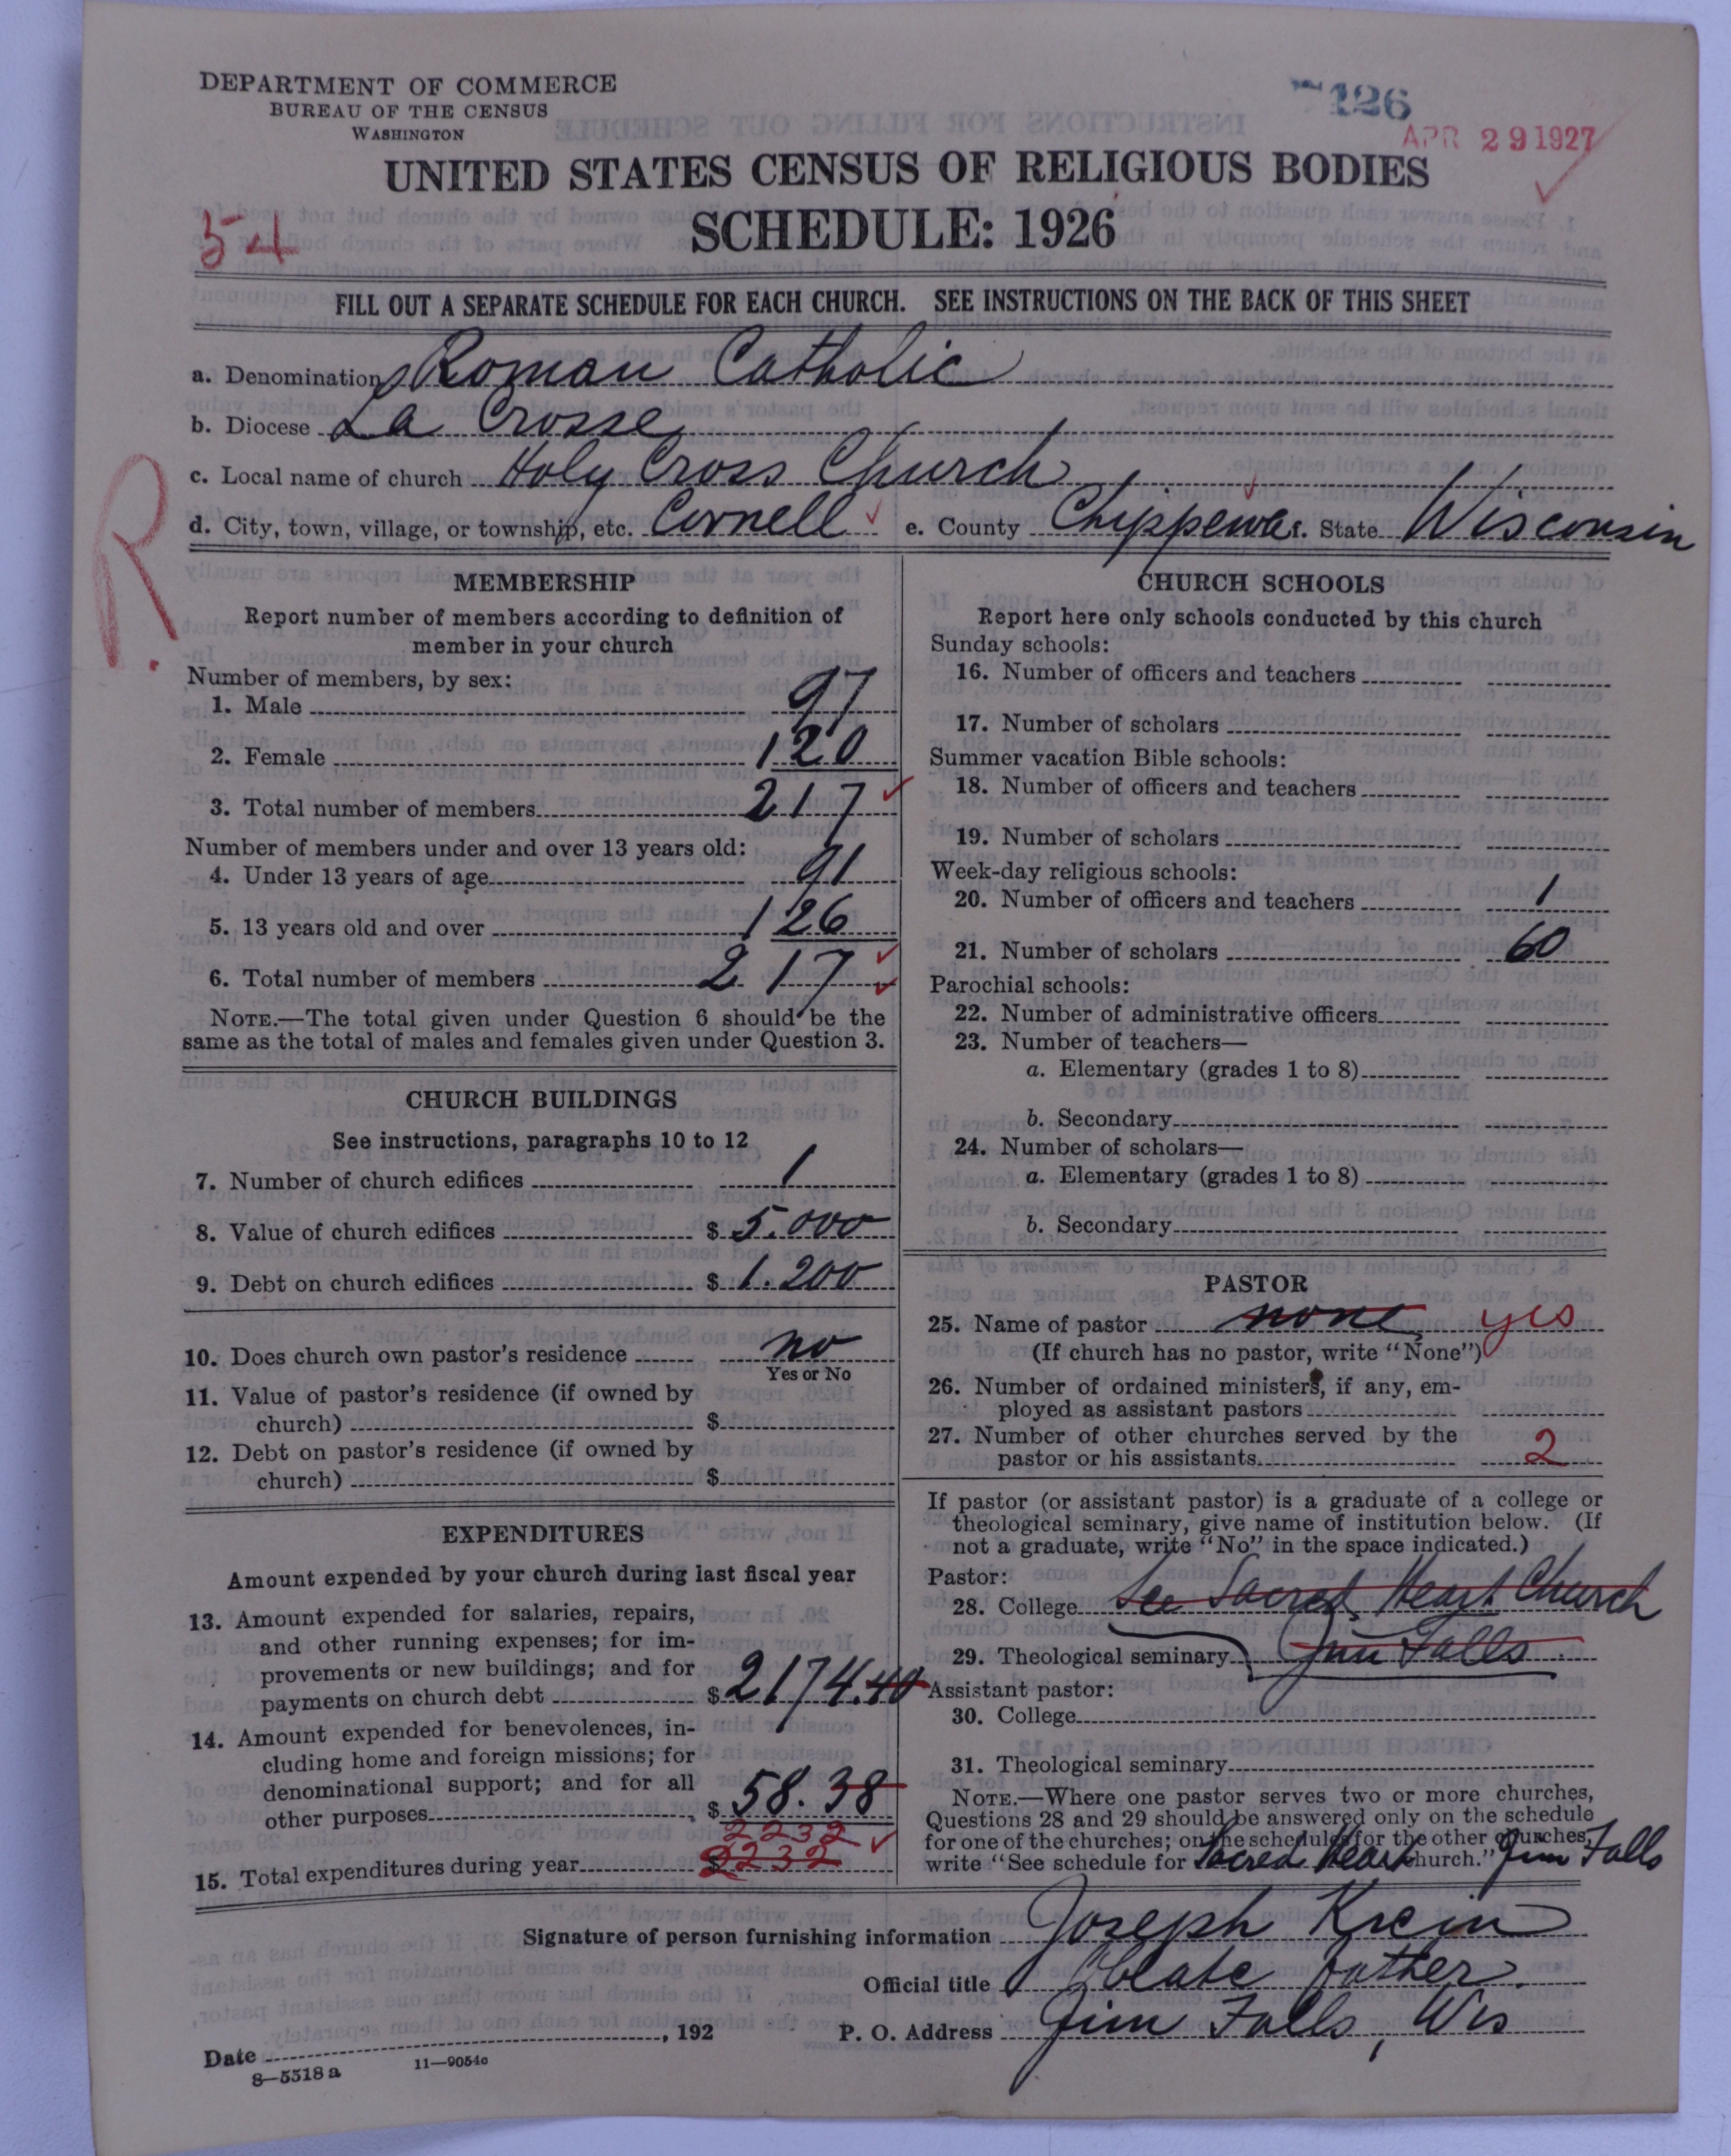 DEPARTMENT OF COMMERCE
BUREAU OF THE CENSUS
WASHINGTON
126
APR 29 1927
UNITED STATES CENSUS OF RELIGIOUS BODIES
SCHEDULE: 1926
54
FILL OUT A SEPARATE SCHEDULE FOR EACH CHURCH. SEE INSTRUCTIONS ON THE BACK OF THIS SHEET
a. Denomination Roman Catholic
b. Diocese La Crosse
c. Local name of church Holy Cross Church
d. City, town, village, or township, etc. Cornell e. County Chippewa f. State Wisconsin
R.
MEMBERSHIP
Report number of members according to definition of
member in your church
Number of members, by sex:
1. Male 97
2. Female 120
3. Total number of members 217
Number of members under and over 13 years old:
4. Under 13 years of age 91
5. 13 years old and over 126
6. Total number of members 217
NOTE.—The total given under Question 6 should be the
same as the total of males and females given under Question 3.
CHURCH BUILDINGS
See instructions, paragraphs 10 to 12
7. Number of church edifices 1
8. Value of church edifices $ 5.000
9. Debt on church edifices $ 1.200
10. Does church own pastor's residence no
Yes or No
11. Value of pastor's residence (if owned by
church) $
12. Debt on pastor's residence (if owned by
church) $
EXPENDITURES
Amount expended by your church during last fiscal year
13. Amount expended for salaries, repairs,
and other running expenses; for im-
provements or new buildings; and for
payments on church debt $ 2174.40
14. Amount expended for benevolences, in-
cluding home and foreign missions; for
denominational support; and for all
other purposes $ 58.38
2232
15. Total expenditures during year $ 2232
CHURCH SCHOOLS
Report here only schools conducted by this church
Sunday schools:
16. Number of officers and teachers
17. Number of scholars
Summer vacation Bible schools:
18. Number of officers and teachers
19. Number of scholars
Week-day religious schools:
20. Number of officers and teachers 1
21. Number of scholars 60
Parochial schools:
22. Number of administrative officers
23. Number of teachers—
a. Elementary (grades 1 to 8)
b. Secondary
24. Number of scholars—
a. Elementary (grades 1 to 8)
b. Secondary
PASTOR
25. Name of pastor none yes
(If church has no pastor, write "None")
26. Number of ordained ministers, if any, em-
ployed as assistant pastors
27. Number of other churches served by the
pastor or his assistants 2
If pastor (or assistant pastor) is a graduate of a college or
theological seminary, give name of institution below. (If
not a graduate, write "No" in the space indicated.)
Pastor:
28. College See Sacred Heart Church
29. Theological seminary Jim Falls
Assistant pastor:
30. College
31. Theological seminary
NOTE.—Where one pastor serves two or more churches,
Questions 28 and 29 should be answered only on the schedule
for one of the churches; on the schedules for the other churches,
write "See schedule for Sacred Heart church." Jim Falls
Signature of person furnishing information Joseph Krein
Official title Oblate Father
Date , 192 P. O. Address Jim Falls, Wis
8—5318 a 11—9054c